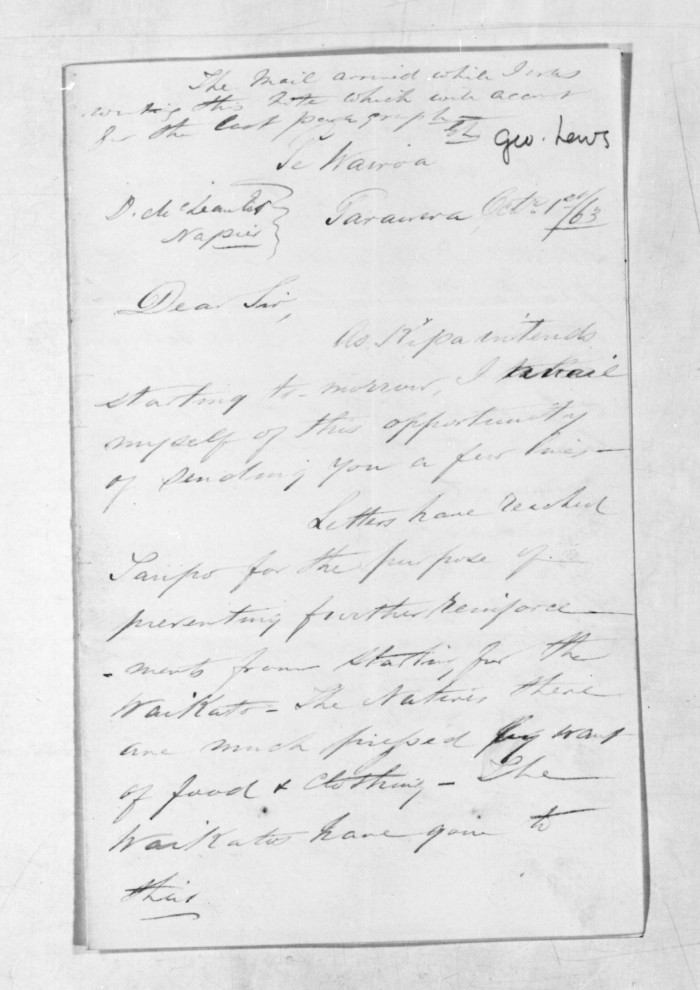 The Mail arrived while I was
writing this note which will account
for the last paragraph
Geo. Laws
Te Wairoa
D. McLean Esq
Napier
Tarawera, Octr 1st/63
Dear Sir,
As Kipa intends
starting to-morrow, I avail
myself of this opportunity
of sending you a few lines -
Letters have reached
Taupo for the purpose of
preventing further reinforce
- ments from starting for the
Waikato - The Natives there
are much pressed by want
of food & clothing - The
Waikatos have gone to
their